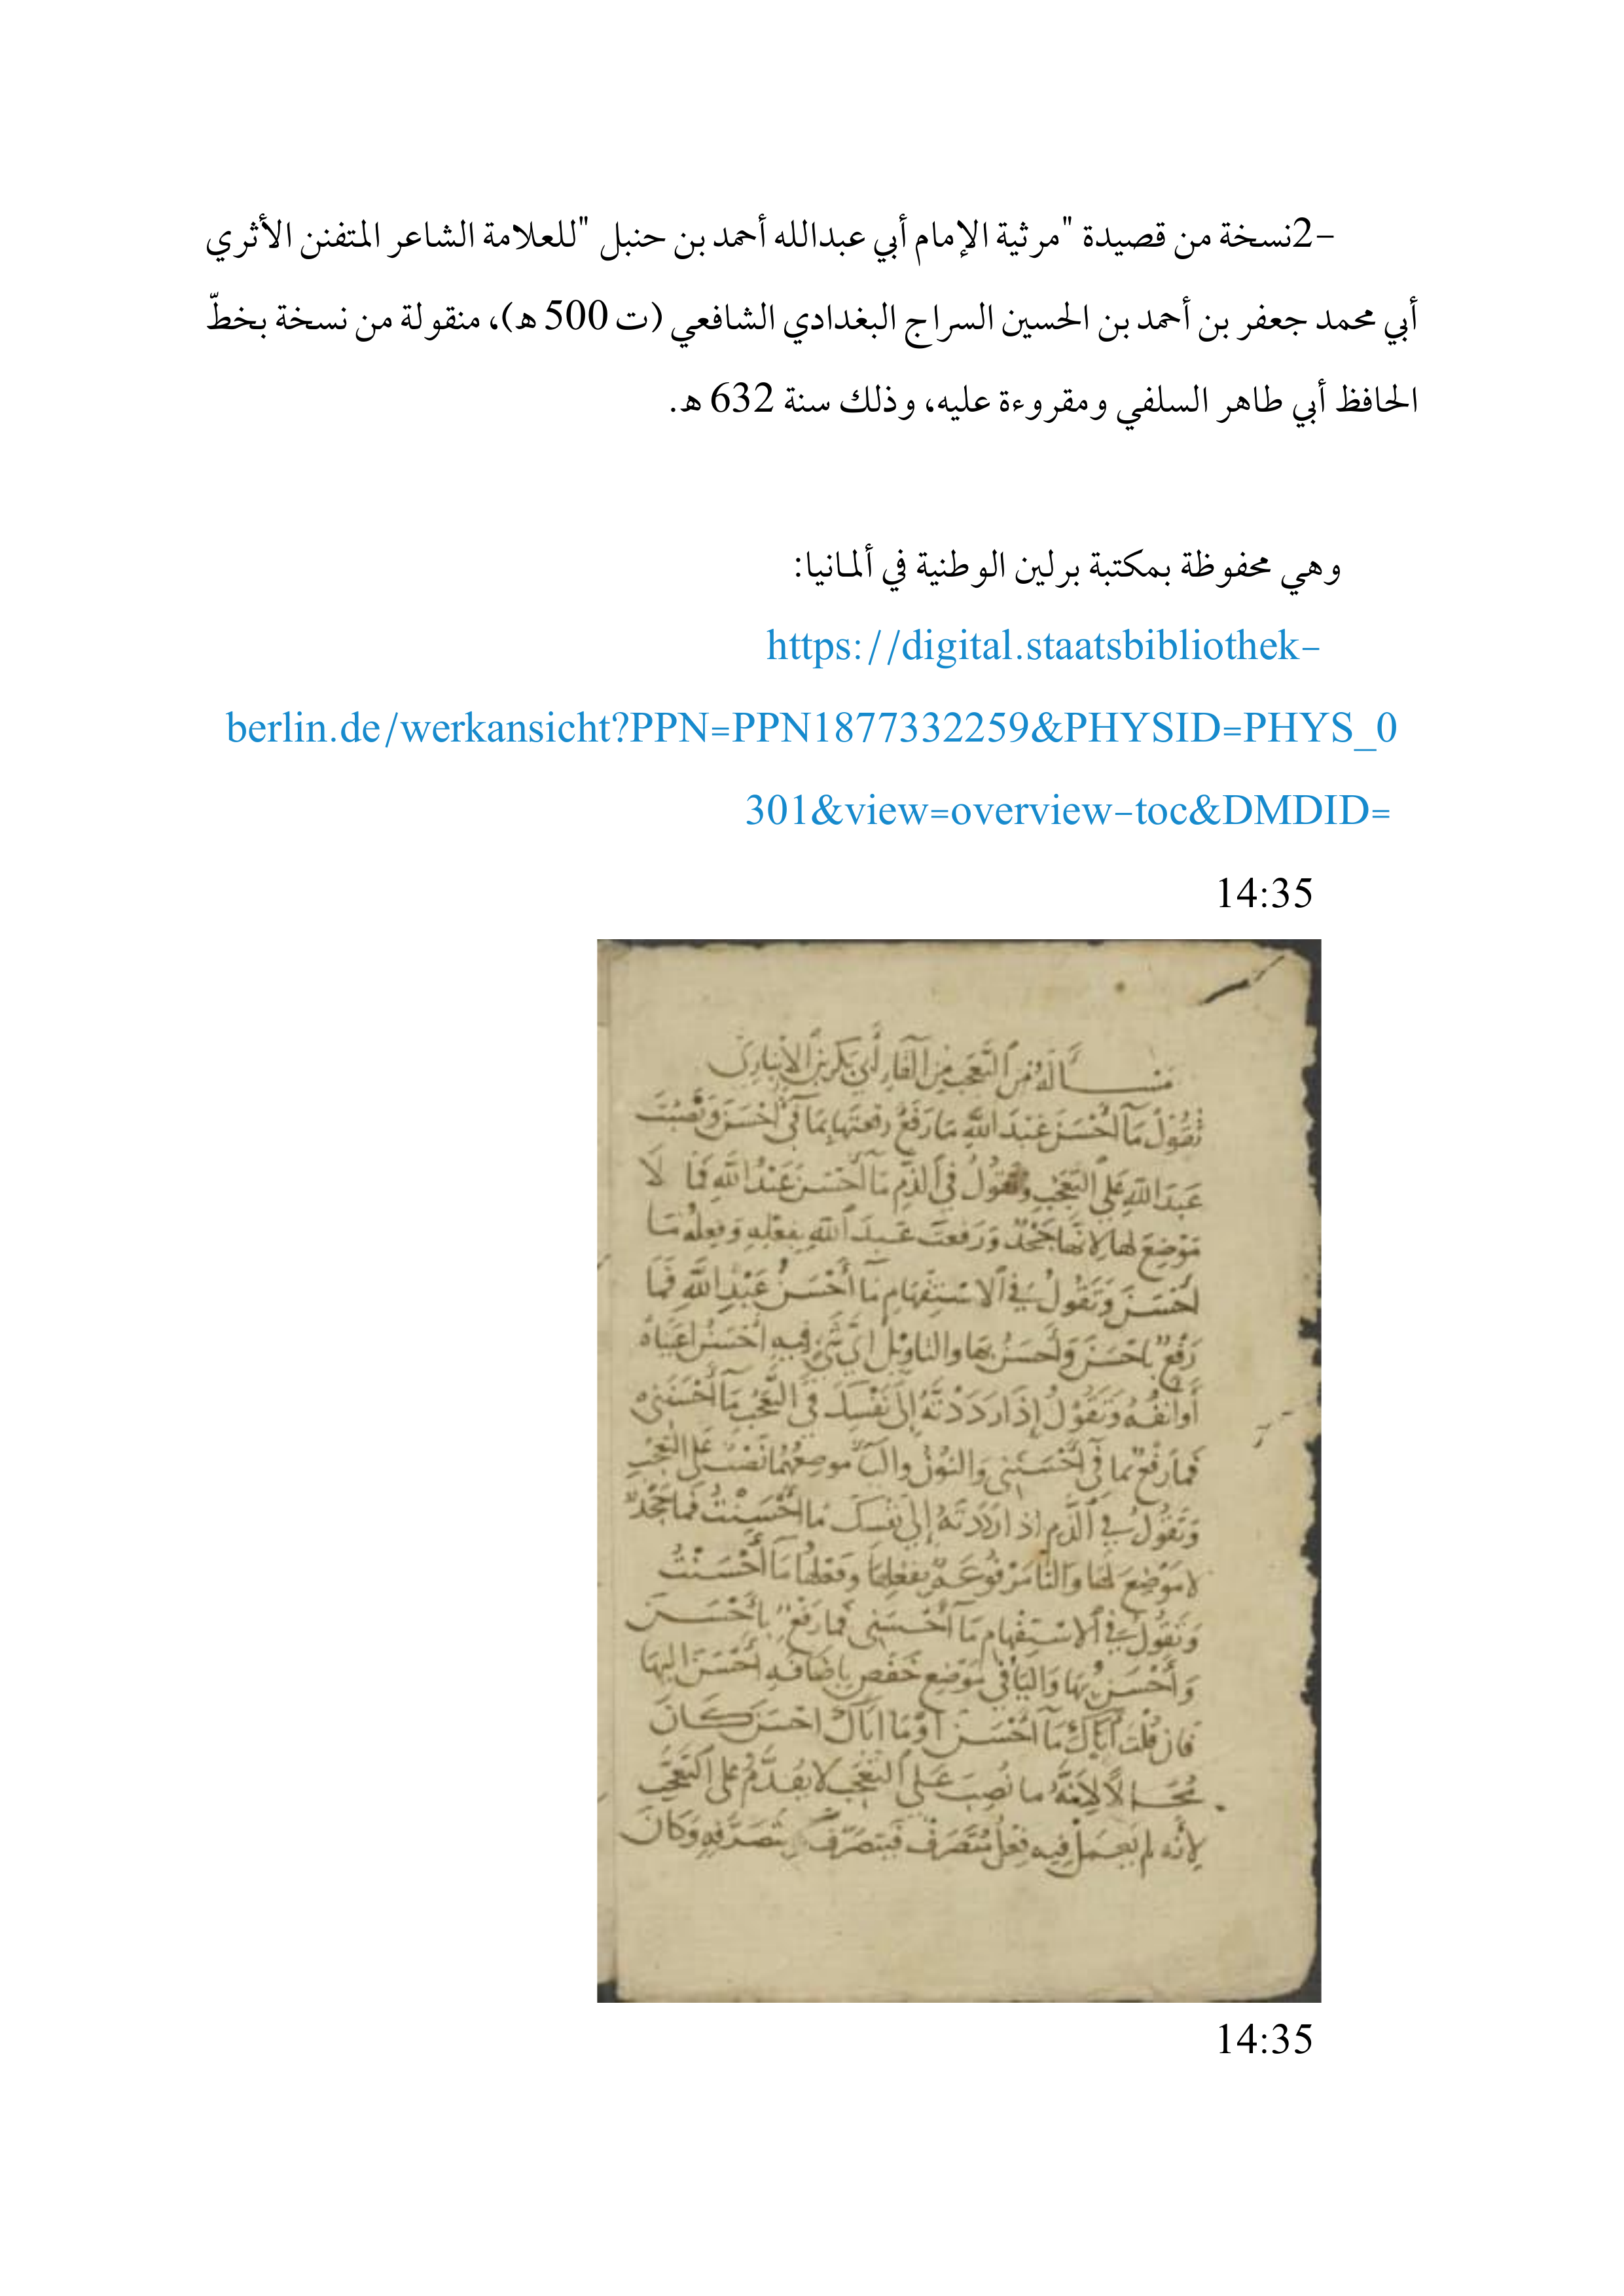 -2نسخة من قصيدة "مرثية الإمام أبي عبدالله أحمد بن حنبل "للعلامة الشاعر المتفنن الأثري
أبي محمد جعفر بن أحمد بن الحسين السراج البغدادي الشافعي (ت 500 ه)، منقولة من نسخة بخطّ
الحافظ أبي طاهر السلفي ومقروءة عليه، وذلك سنة 632 ه.
وهي محفوظة بمكتبة برلين الوطنية في ألمانيا:
https://digital.staatsbibliothek-
berlin.de/werkansicht?PPN=PPN1877332259&PHYSID=PHYS_0
301&view=overview-toc&DMDID=
14:35
مسألة من التعجب من الفار أبي بكر بن الأنباري
تقول ما أحسن عبد الله ما رفع رفعتها بما في أحسن ونصبت
عبد الله على التعجب وتقول في الذم ما أحسن عبد الله فما لا
موضع لها لأنها جحد ورفعت عبد الله بفعله وفعله ما
أحسن وتقول في الاستفهام ما أحسن عبد الله فما
رفع بأحسن وأحسن بها والتأويل أي شيء فيه أحسن أعيناه
أو أنفه وتقول إذا رددته إلى نفسك في التعجب ما أحسنني
فما رفع بما في أحسنني والنون والياء موضعهما نصب على التعجب
وتقول في الذم إذا رددته إلى نفسك ما أحسنت فما جحد
لا موضع لها والتا مرفوعة بفعلها وفعلها ما أحسنت
وتقول في الاستفهام ما أحسني فما رفع بأحسن
وأحسن بها واليا في موضع خفض بإضافة أحسن إليها
فان قلت أباك ما أحسن أو ما أباك أحسن كان
محالا لأنه ما نصب على التعجب لا يقدم على التعجب
لأنه لم يعمل فيه فعل متصرف فيتصرف بتصرفه وكان
14:35